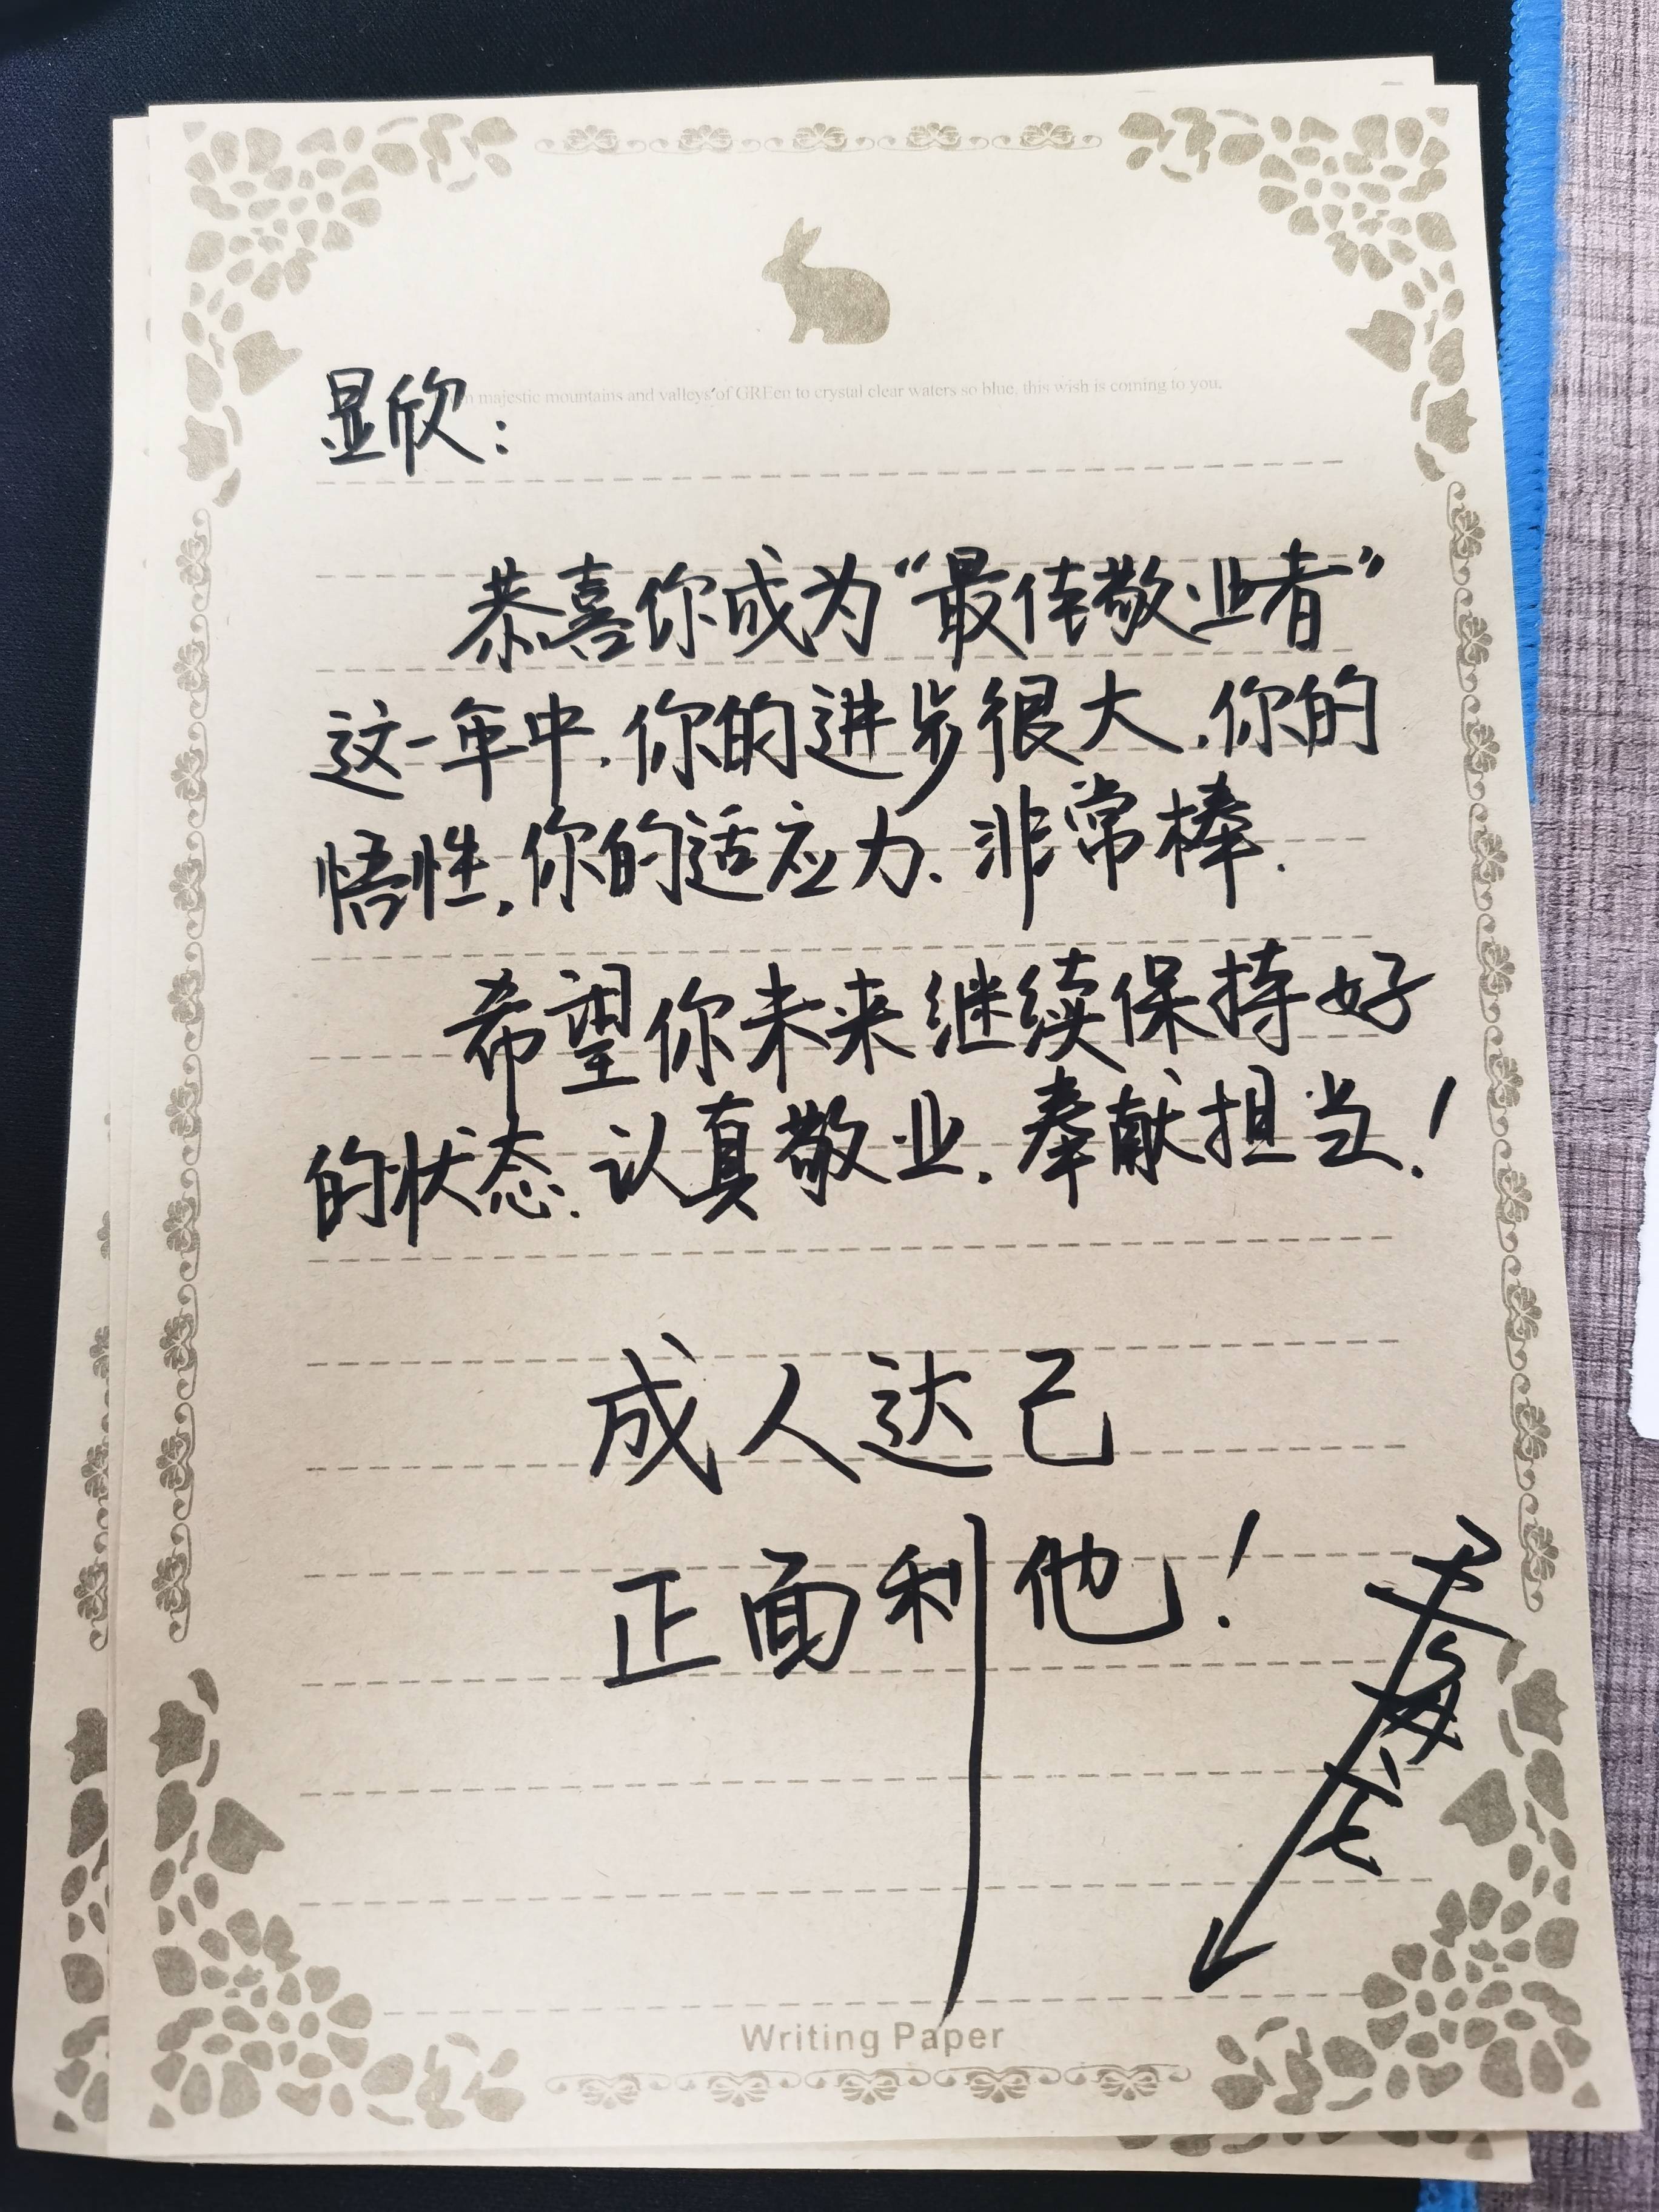 majestic mountains and valleys of GREen to crystal clear waters so blue, this wish is coming to you.
显欣：
恭喜你成为“最佳敬业者”
这一年中，你的进步很大，你的
悟性，你的适应力、非常棒.
希望你未来继续保持好
的状态、认真敬业、奉献担当！
成人达己
正面利他！
Writing Paper